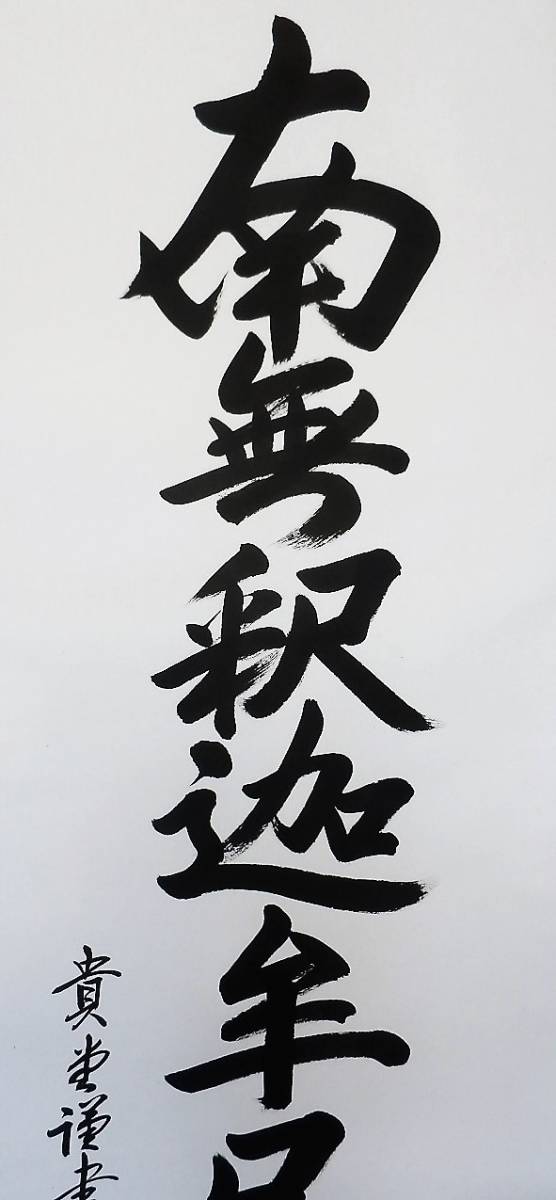 南無釈迦牟尼
貴堂謹書